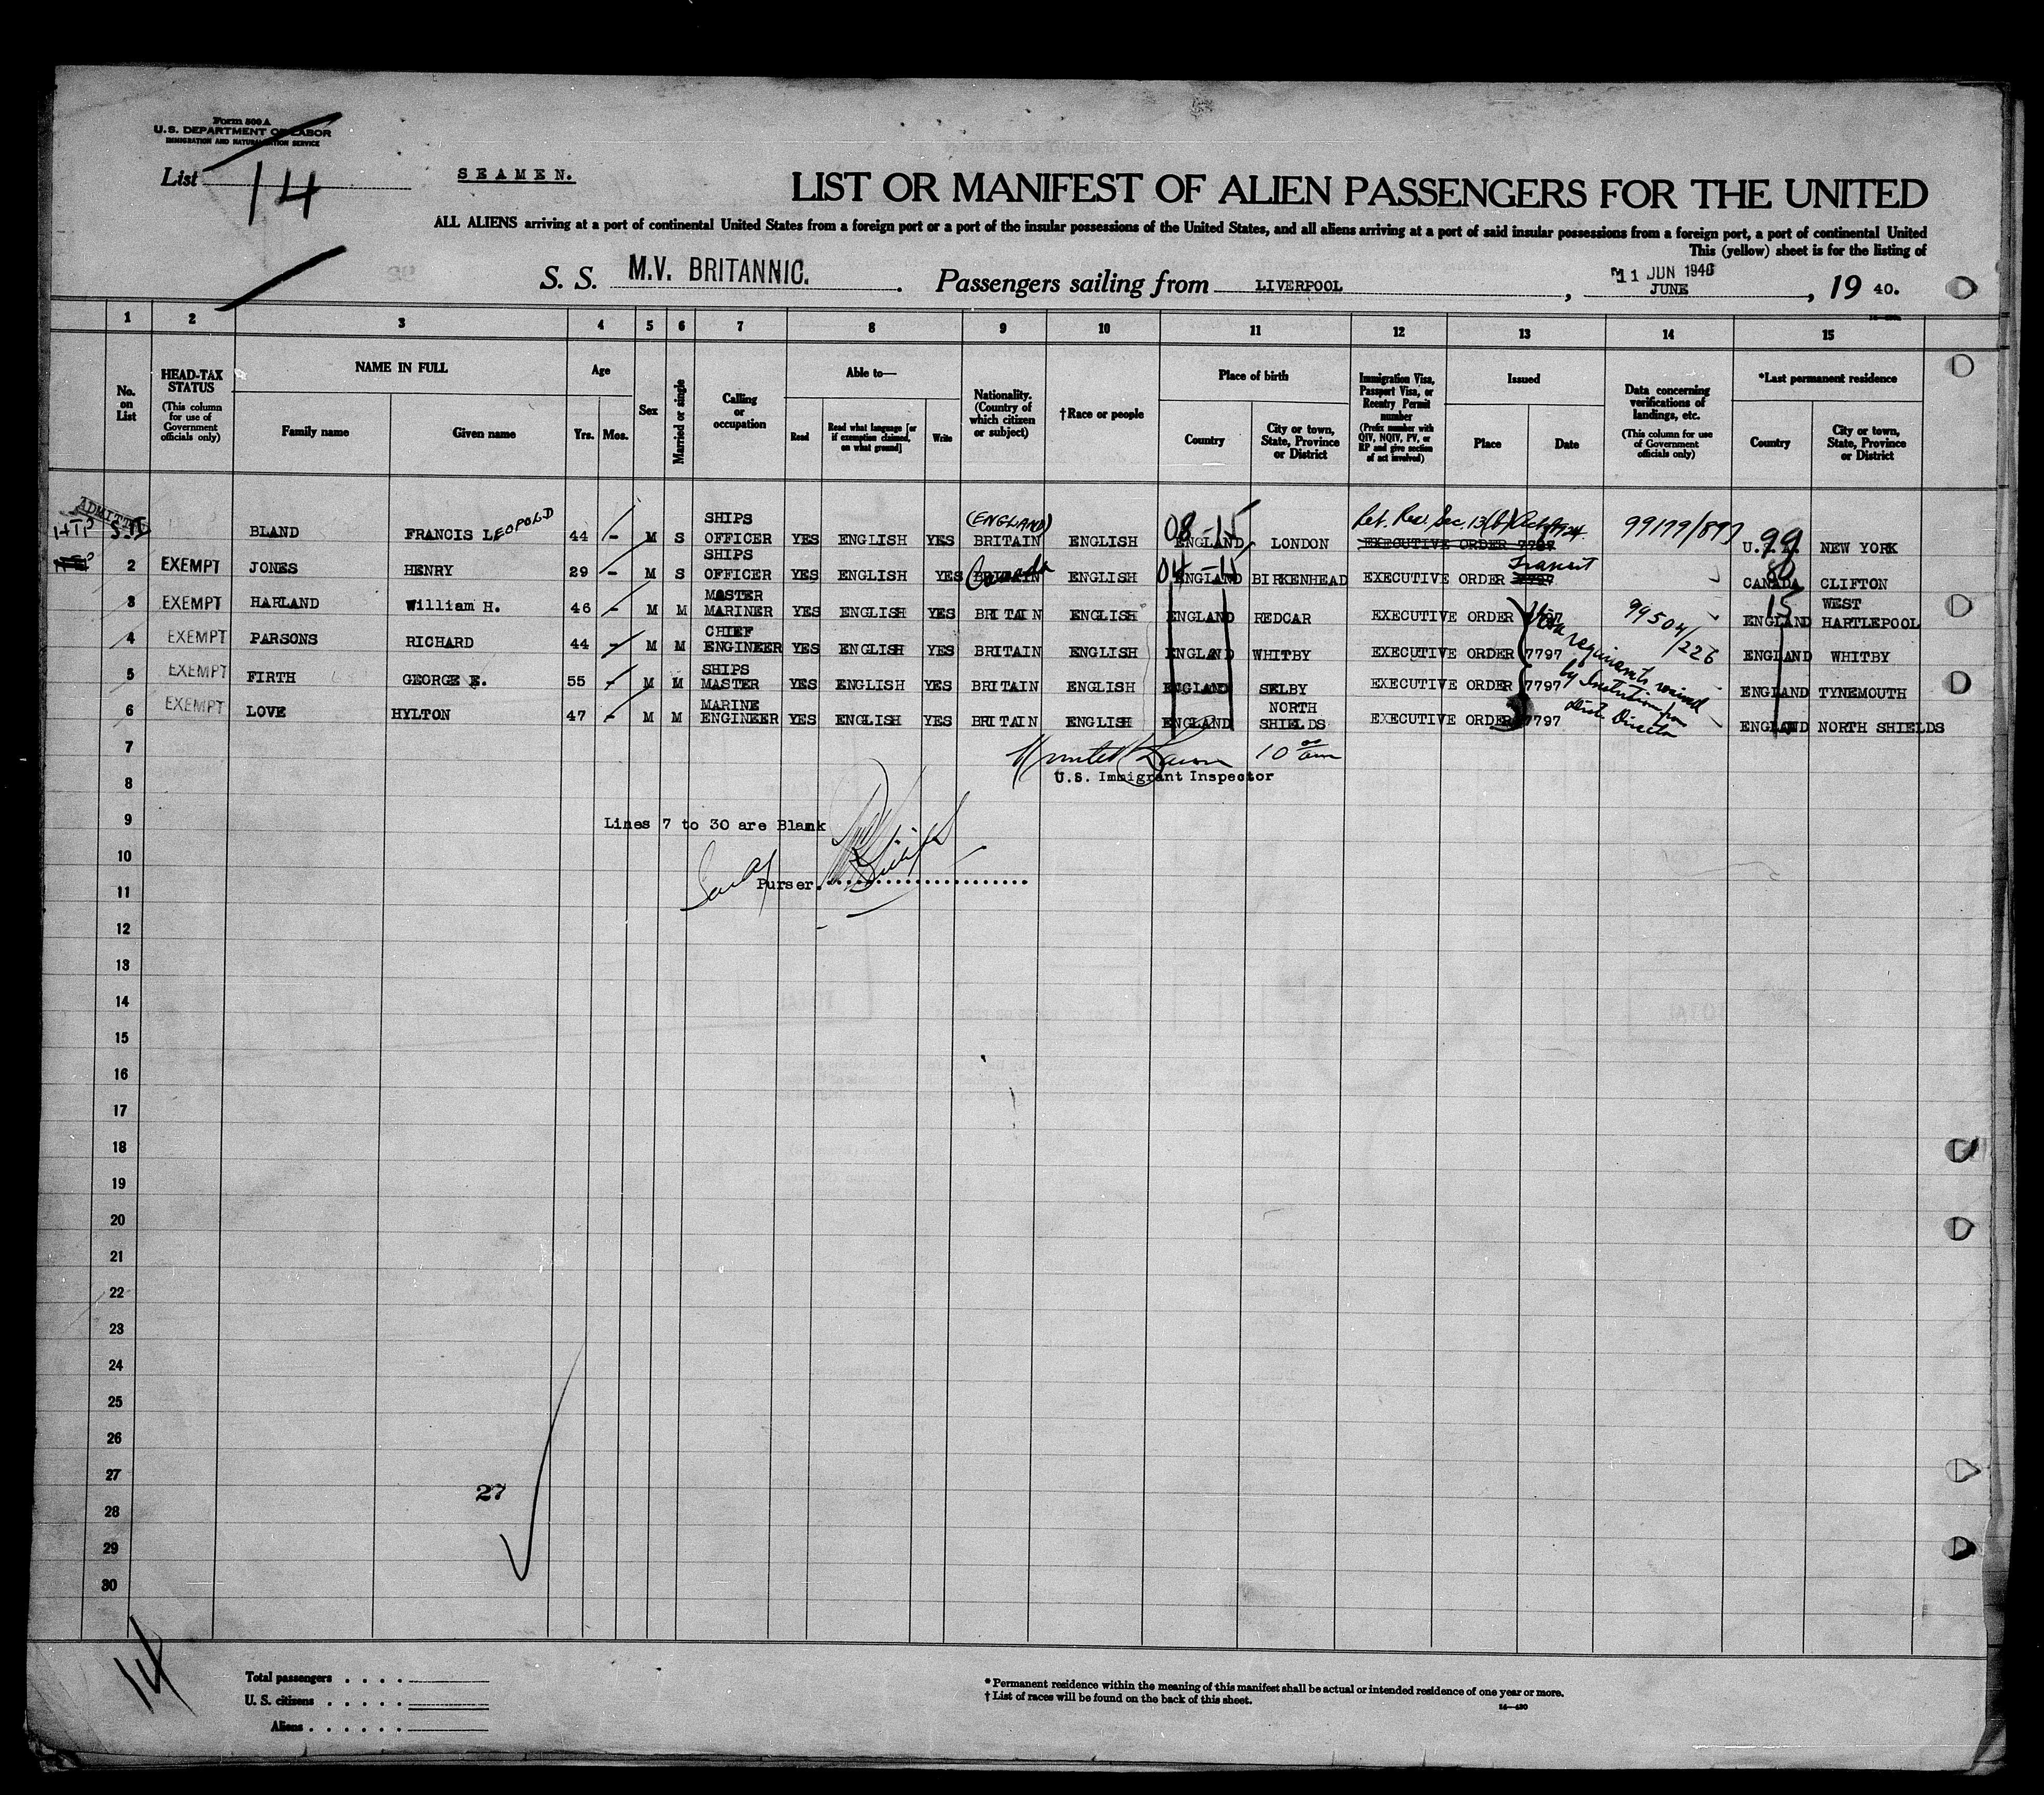 Form 500 A
U.S. DEPARTMENT OF LABOR
IMMIGRATION AND NATURALIZATION SERVICE
List 14
SEAMEN.
LIST OR MANIFEST OF ALIEN PASSENGERS FOR THE UNITED
ALL ALIENS arriving at a port of continental United States from a foreign port or a port of the insular possessions of the United States, and all aliens arriving at a port of said insular possessions from a foreign port, a port of continental United
This (yellow) sheet is for the listing of
S. S. M.V. BRITANNIC. Passengers sailing from LIVERPOOL, 11 JUN 1940 JUNE, 19 40.
1 2 3 4 5 6 7 8 9 10 11 12 13 14 15
No. on List
HEAD-TAX STATUS (This column for use of Government officials only)
NAME IN FULL
Family name
Given name
Age
Yrs. Mos.
Sex
Married or single
Calling or occupation
Able to—
Read
Read what language [or if exemption claimed, on what ground]
Write
Nationality. (Country of which citizen or subject)
†Race or people
Place of birth
Country
City or town, State, Province or District
Immigration Visa, Passport Visa, or Reentry Permit number (Prefix number with QIV, NQIV, PV, or RP and give section of act involved)
Issued
Place
Date
Data concerning verifications of landings, etc. (This column for use of Government officials only)
*Last permanent residence
Country
City or town, State, Province or District
ADMITTED
BLAND FRANCIS LEOPOLD 44 - M S SHIPS OFFICER YES ENGLISH YES (ENGLAND) BRITAIN ENGLISH 08-15 ENGLAND LONDON Ret. Resi. Sec. 13(b) Act 1924. EXECUTIVE ORDER 7797 99179/897 99 U.S.A. NEW YORK
2 EXEMPT JONES HENRY 29 - M S SHIPS OFFICER YES ENGLISH YES BRITAIN Canada ENGLISH 04-15 ENGLAND BIRKENHEAD EXECUTIVE ORDER 7797 Transit CANADA CLIFTON
3 EXEMPT HARLAND William H. 46 - M M MASTER MARINER YES ENGLISH YES BRITAIN ENGLISH ENGLAND REDCAR EXECUTIVE ORDER 99504/226 15 ENGLAND WEST HARTLEPOOL
4 EXEMPT PARSONS RICHARD 44 - M M CHIEF ENGINEER YES ENGLISH YES BRITAIN ENGLISH ENGLAND WHITBY EXECUTIVE ORDER 7797 ENGLAND WHITBY
5 EXEMPT FIRTH GEORGE E. 55 - M M SHIPS MASTER YES ENGLISH YES BRITAIN ENGLISH ENGLAND SELBY EXECUTIVE ORDER 7797 ENGLAND TYNEMOUTH
6 EXEMPT LOVE HYLTON 47 - M M MARINE ENGINEER YES ENGLISH YES BRITAIN ENGLISH ENGLAND NORTH SHIELDS EXECUTIVE ORDER 7797 ENGLAND NORTH SHIELDS
Visa requirements waived
by Instruction from
Dist. Director
7
10 00 am
U.S. Immigrant Inspector
8
9
Lines 7 to 30 are Blank
10
Purser.
11
12
13
14
15
16
17
18
19
20
21
22
23
24
25
26
27
27
28
29
30
14
Total passengers
U. S. citizens
Aliens
* Permanent residence within the meaning of this manifest shall be actual or intended residence of one year or more.
† List of races will be found on the back of this sheet.
14—430